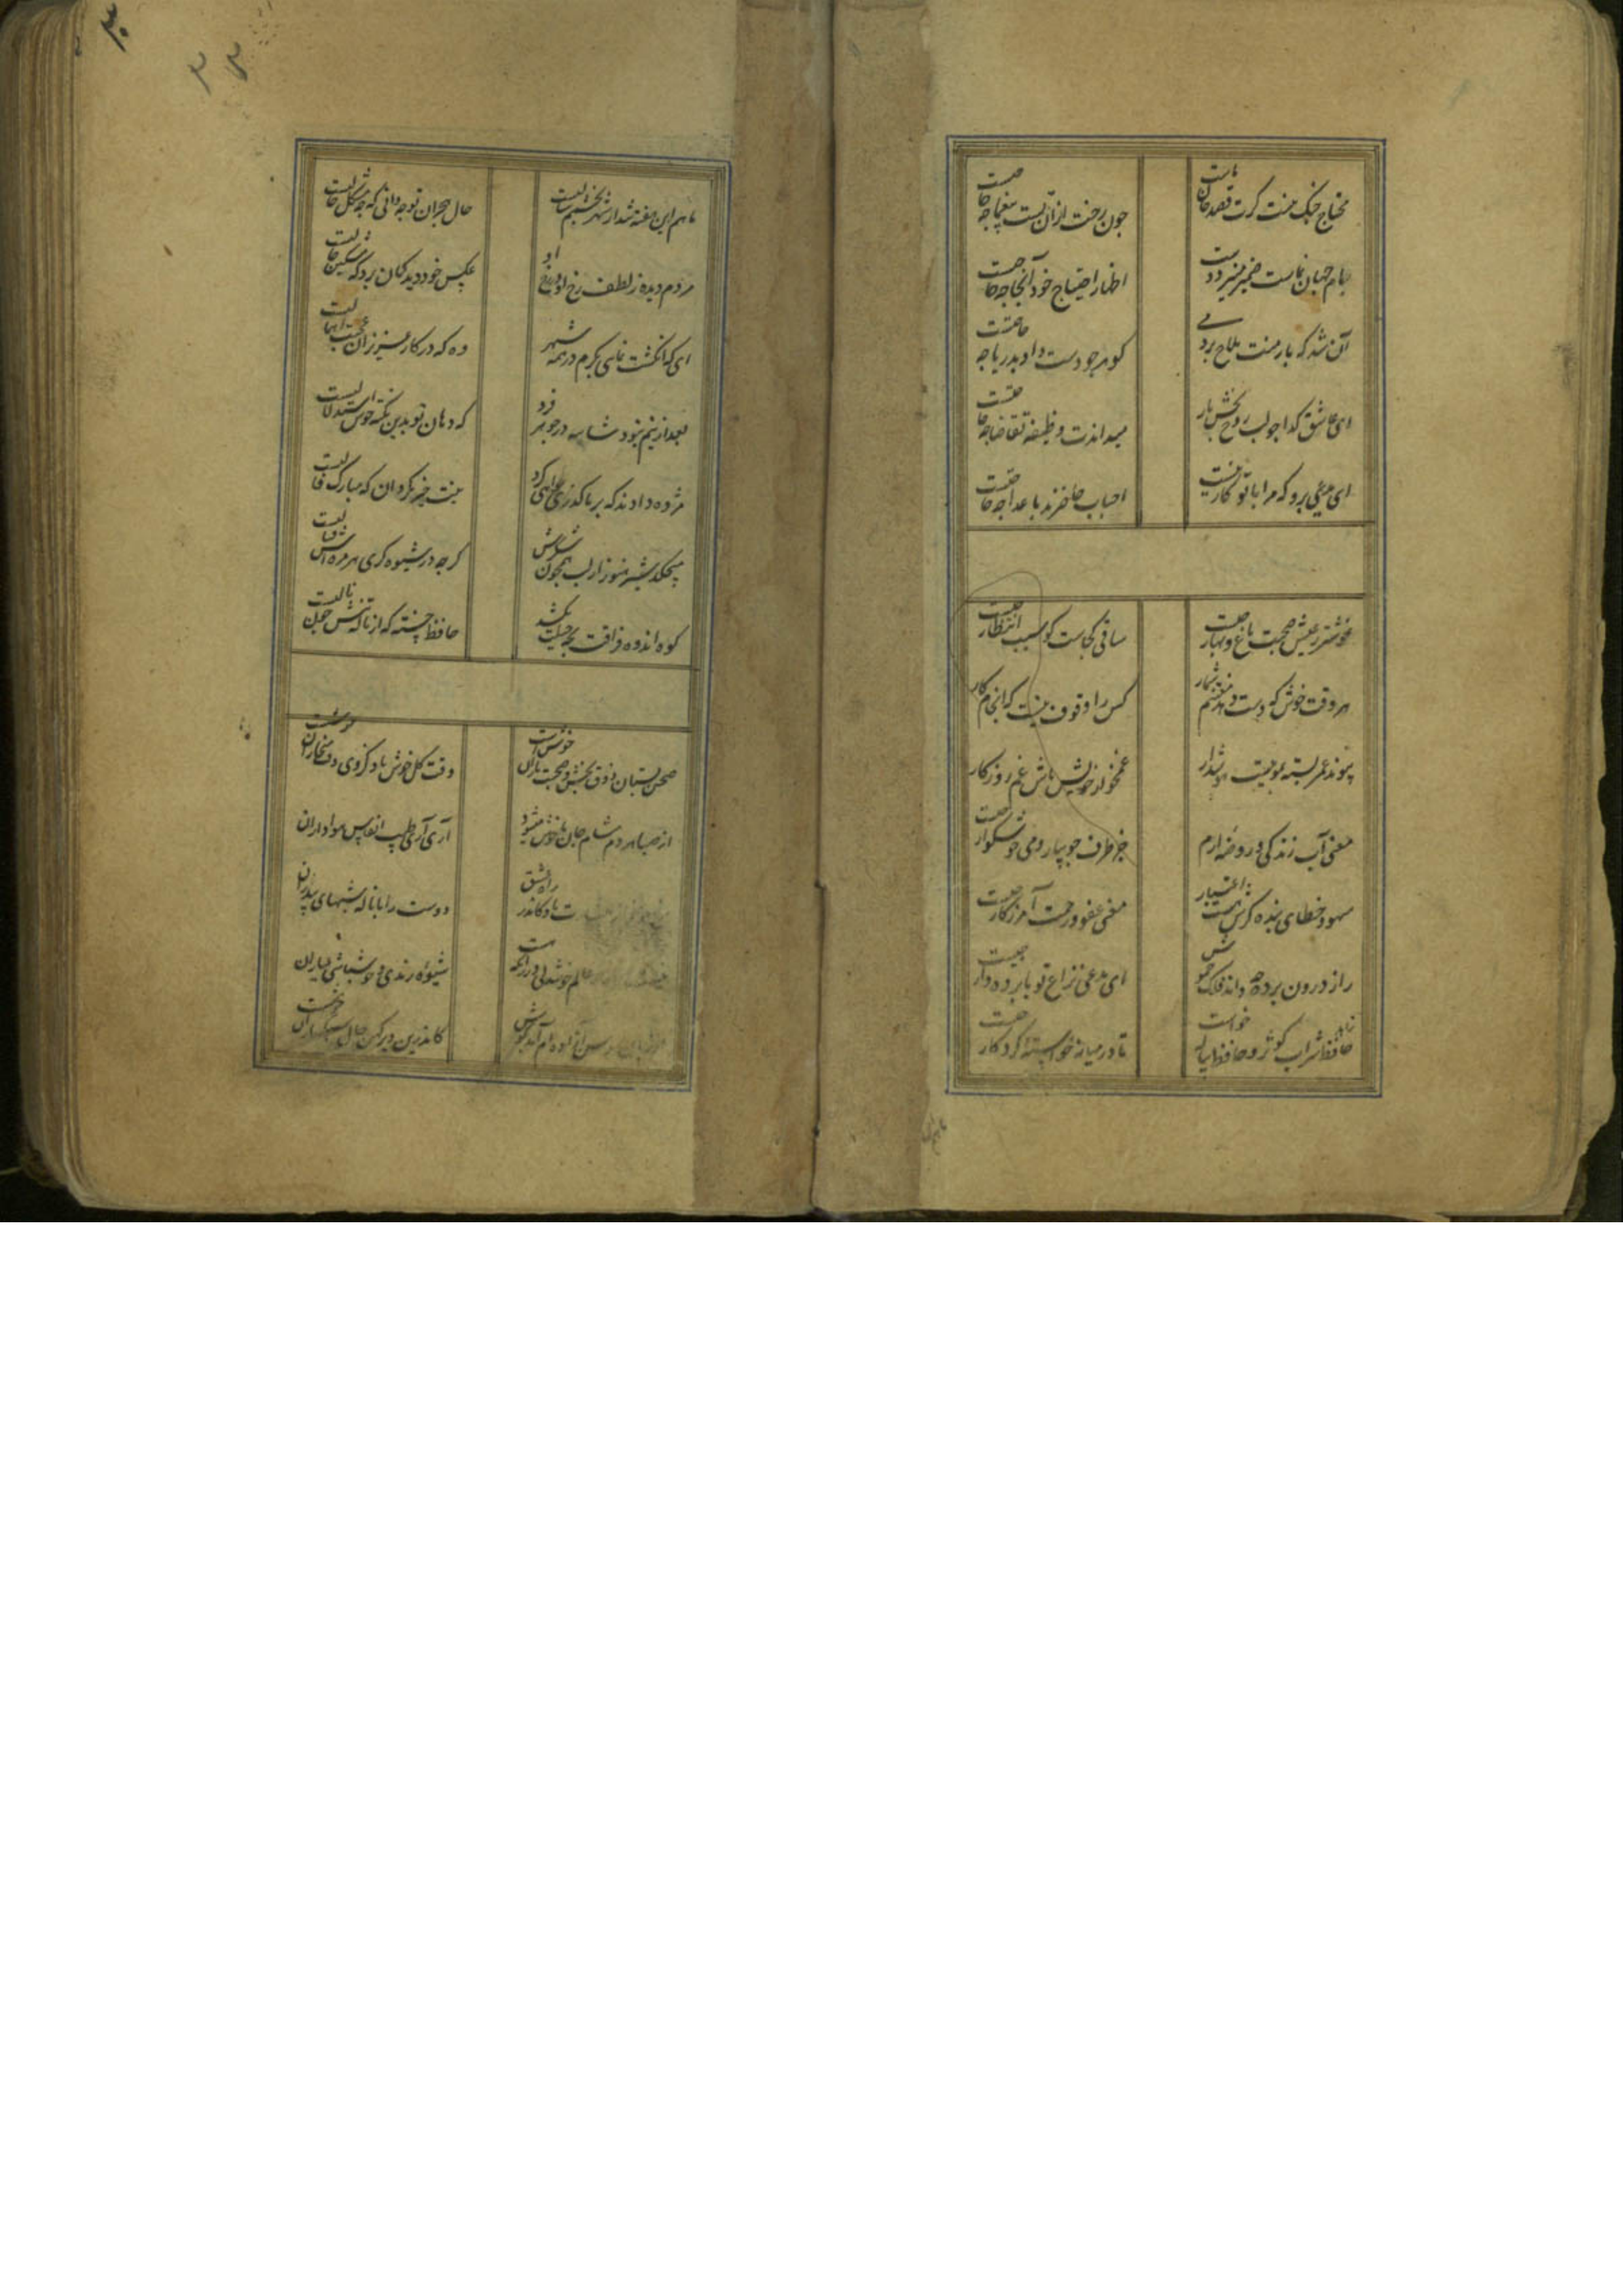 محتاج جنک نیست کرت قصد جان ماست
چون رخت ازان تست بیغما چه حاجتست
جام جهان نماست ضمیر منیر دوست
اظهار احتیاج خود آنجا چه حاجتست
آن شد که بار منت ملاح بردمی
کوهر چو دست داد بدریا چه حاجتست
ای عاشق کدا چو لب روح بخش یار
میداندت وظیفه تقاضا چه حاجتست
ای مدعی برو که مرا با تو کار نیست
احباب حاضرند باعدا چه حاجتست
خوشتر ز عیش و صحبت باغ و بهار چیست
ساقی کجاست کو سبب انتظار چیست
هر وقت خوش که دست دهد مغتنم شمار
کس را وقوف نیست که انجام کار
پیوند عمر بسته بموییست هوشدار
غمخوار خویش باش غم روزکار
معنی آب زندکی و روضه ارم
جز طرف جویبار و می خوشکوار چیست
سهو و خطای بنده کرش نیست اعتبار
معنی عفو و رحمت آمرزکار چیست
راز درون پرده چه داند فلک خموش
ای مدعی نزاع تو با پرده دار چیست
زاهد شراب کوثر و حافظ پیاله خواست
تا در میانه خواسته کردکار چیست
ماهم این هفته شد از شهر و بچشمم سالیست
حال هجران تو چه دانی که چه مشکل حالیست
مردم دیده ز لطف رخ او در رخ او
عکس خود دید کمان برد که مشکین خالیست
ای که انکشت نمایی بکرم در همه شهر
وه که در کار غریبان عجبت اهمالیست
بعد ازینم نبود شایبه در جوهر فرد
که دهان تو بدین نکته خوش استدلالیست
مژده دادند که بر ما کذری خواهی کرد
نیت خیر مکردان که مبارک فالیست
میچکد شیر هنوز از لب همچون شکرش
کرچه در شیوه کری هر مژه اش قتالیست
کوه اندوه فراقت بچه حیلت بکشد
حافظ خسته که از ناله تنش چون نالیست
صحن بستان ذوق بخش و صحبت یاران خوشست
وقت کل خوش باد کزوی وقت میخواران خوشست
از صبا هر دم مشام جان ما خوش میشود
آری آری طیب انفاس هواداران
راه عشق
دوست را با ناله شبهای بیداران
عالم خوشدلی ورزانکه هست
شیوه رندی و خوشباشی عیاران
سوسن آزاده ام آمد بکوش
کاندرین دیر کهن حال سبکساران خوشست